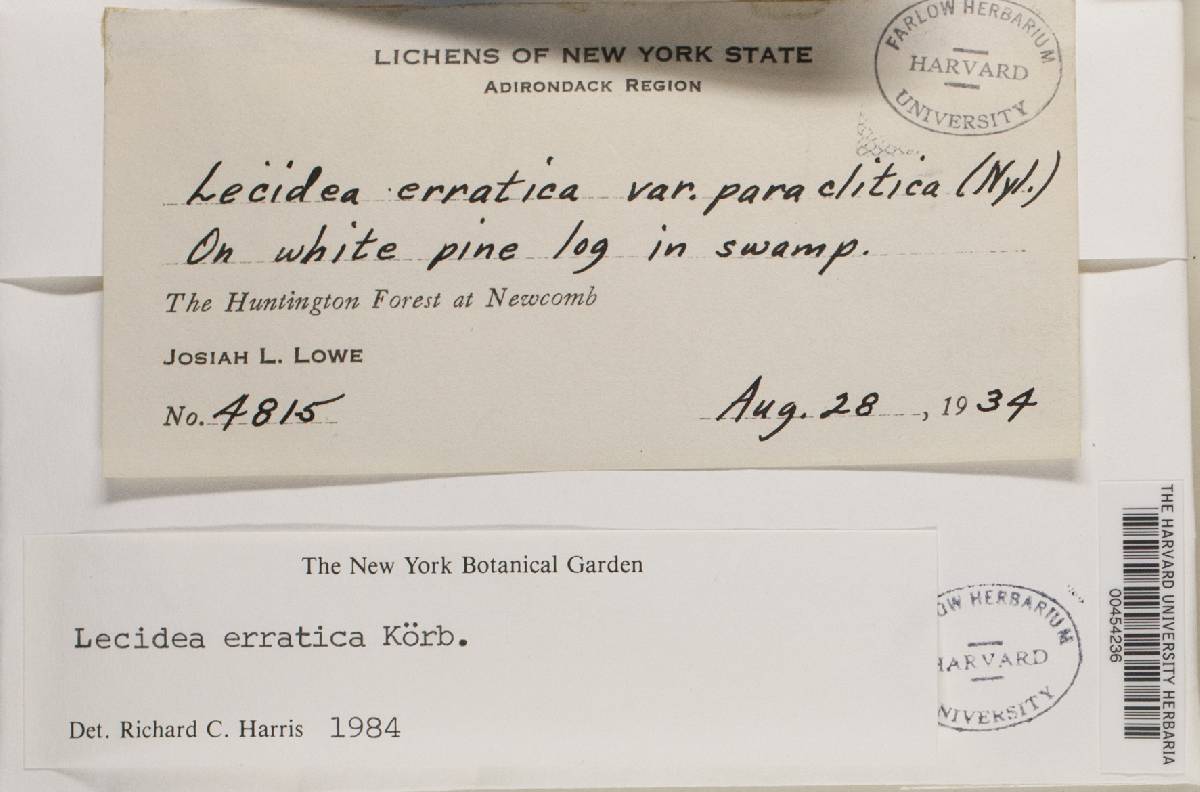 LICHENS OF NEW YORK STATE
ADIRONDACK REGION
FARLOW HERBARIUM
HARVARD
UNIVERSITY
Lecidea erratica var. paraclitica (Nyl.)
On white pine log in swamp.
The Huntington Forest at Newcomb
JOSIAH L. LOWE
No. 4815
Aug. 28, 1934
The New York Botanical Garden
Lecidea erratica Körb.
Det. Richard C. Harris 1984
OW HERBARIUM
HARVARD
NIVERSITY
THE HARVARD UNIVERSITY HERBARIA
00454236